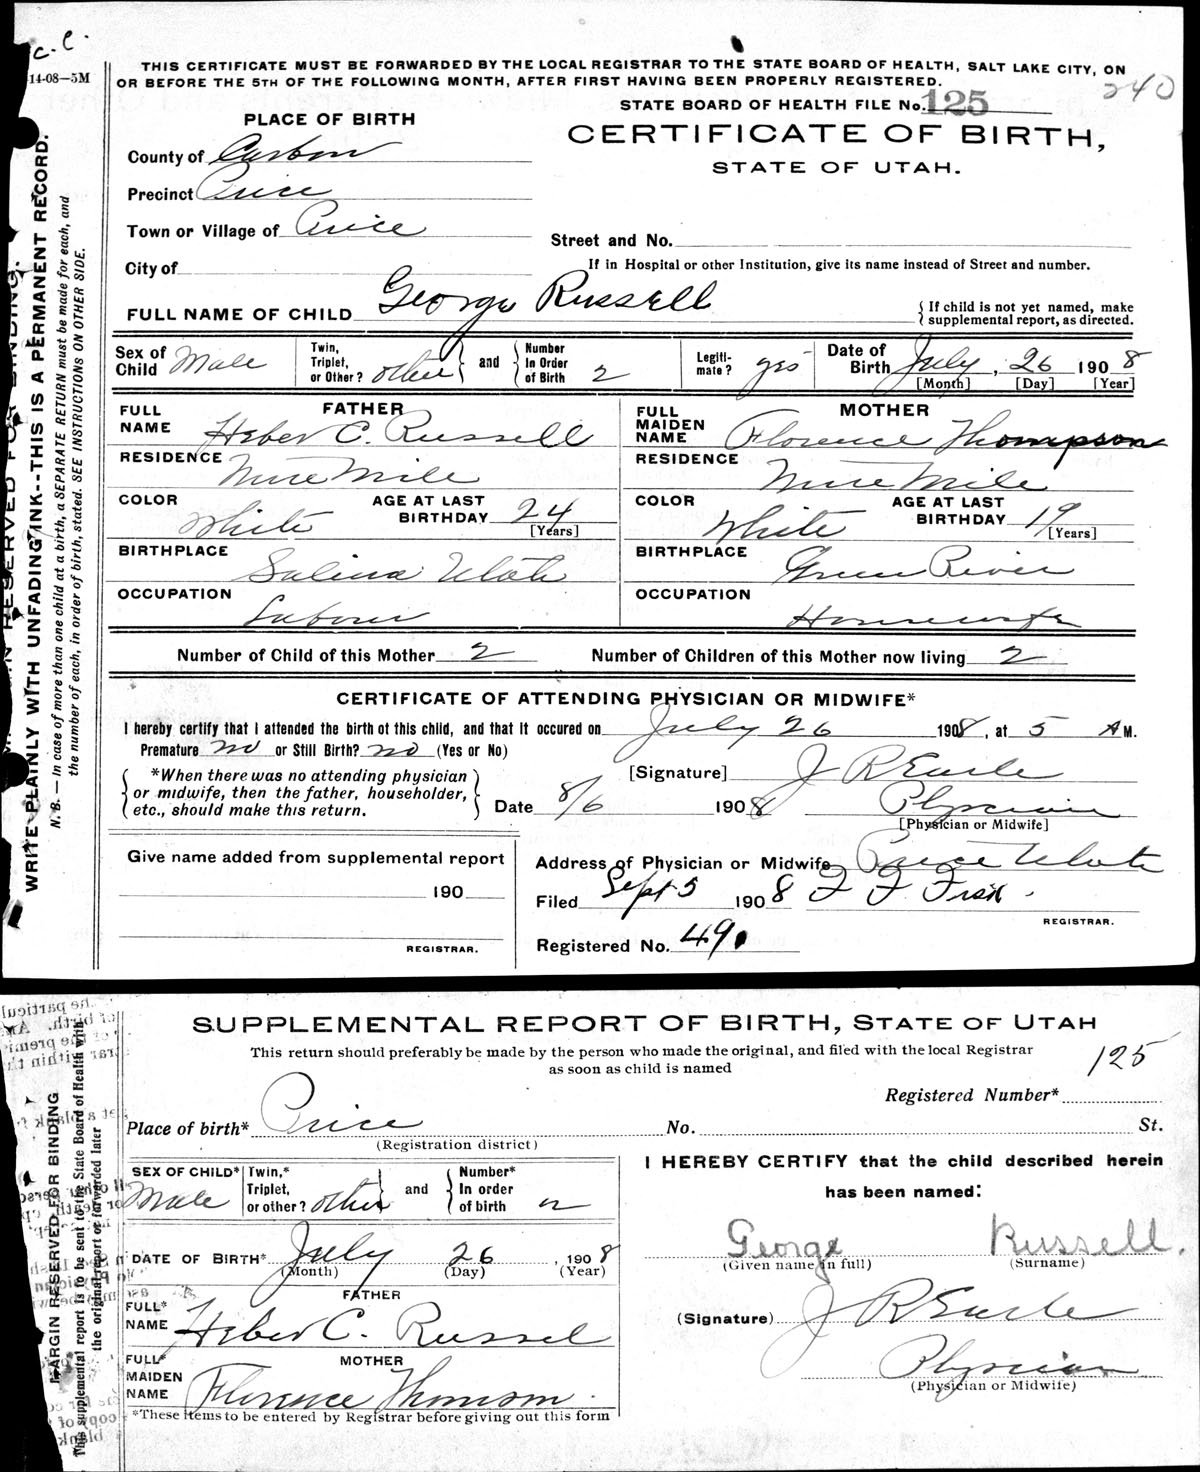 c. c.
14-08—5M
THIS CERTIFICATE MUST BE FORWARDED BY THE LOCAL REGISTRAR TO THE STATE BOARD OF HEALTH, SALT LAKE CITY, ON
OR BEFORE THE 5TH OF THE FOLLOWING MONTH, AFTER FIRST HAVING BEEN PROPERLY REGISTERED.
240
STATE BOARD OF HEALTH FILE No. 125
PLACE OF BIRTH
CERTIFICATE OF BIRTH,
STATE OF UTAH.
County of Carbon
Precinct Price
Town or Village of Price
Street and No.
City of
If in Hospital or other Institution, give its name instead of Street and number.
FULL NAME OF CHILD George Russell
{If child is not yet named, make
supplemental report, as directed.
Sex of Child Male
Twin, Triplet, or Other? other
and
Number In Order of Birth 2
Legiti-mate? yes
Date of Birth July, 26 1908
[Month] [Day] [Year]
FATHER
FULL NAME Heber C. Russell
MOTHER
FULL MAIDEN NAME Florence Thompson
RESIDENCE Nine Mile
RESIDENCE Nine Mile
COLOR White AGE AT LAST BIRTHDAY 24 [Years]
COLOR White AGE AT LAST BIRTHDAY 19 [Years]
BIRTHPLACE Salina Utah
BIRTHPLACE Green River
OCCUPATION Laborer
OCCUPATION Housewife
Number of Child of this Mother 2 Number of Children of this Mother now living 2
CERTIFICATE OF ATTENDING PHYSICIAN OR MIDWIFE*
I hereby certify that I attended the birth ot this child, and that it occured on July 26 1908, at 5 AM.
Premature no or Still Birth? no (Yes or No)
*When there was no attending physician
or midwife, then the father, householder,
etc., should make this return.
[Signature] J R Earle
Date 8/6 1908 Physician
[Physician or Midwife]
Give name added from supplemental report
190
REGISTRAR.
Address of Physician or Midwife Price Utah
Filed Sept 5 1908 F F Fisk.
REGISTRAR.
Registered No. 49
WRITE PLAINLY WITH UNFADING INK--THIS IS A PERMANENT RECORD.
N. B. — In case of more than one child at a birth, a SEPARATE RETURN must be made for each, and
the number of each, in order of birth, stated. SEE INSTRUCTIONS ON OTHER SIDE.
SUPPLEMENTAL REPORT OF BIRTH, STATE OF UTAH
This return should preferably be made by the person who made the original, and filed with the local Registrar
as soon as child is named
125
Registered Number*
Place of birth* Price No. St.
(Registration district)
SEX OF CHILD* Male
Twin,* Triplet, or other? other
and
Number* In order of birth 2
I HEREBY CERTIFY that the child described herein
has been named:
George Russell.
(Given name in full) (Surname)
DATE OF BIRTH* July 26, 1908
(Month) (Day) (Year)
FATHER
FULL* NAME Heber C. Russel
(Signature) J R Earle
MOTHER
FULL* MAIDEN NAME Florence Thomson.
Physician
(Physician or Midwife)
*These items to be entered by Registrar before giving out this form
MARGIN RESERVED FOR BINDING
This supplemental report is to be sent to the State Board of Health with
the original report or forwarded later